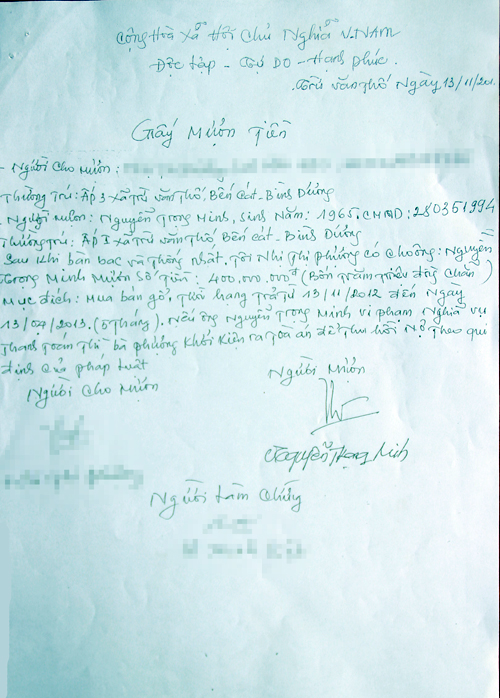 Cộng Hoà Xã Hội Chủ Nghĩa V.NAM
Độc Lập - Tự DO - Hạnh phúc.
Trừ Văn Thố Ngày 13/11/20
Giấy Mượn Tiền
- Người Cho Mượn:
Thường Trú: Ấp 3 Xã Trừ Văn Thố, Bến Cát - Bình Dương
- Người Mượn: Nguyễn Trong Minh, Sinh Năm: 1965. CMND: 280351994
Thường Trú: Ấp I Xã Trừ Văn Thố, Bến Cát - Bình Dương
Sau khi bàn bạc và thống nhất. Tôi Nhi Thi phương có cho ông: Nguyễn
Trong Minh Mượn Số Tiền: 400.000.000đ (Bốn Trăm Triệu đồng Chẵn)
Mục đích: Mua bán gỗ, Thời hạng Trả Từ 13/11/2012 đến Ngày
13/04/2013. (5 Tháng). Nếu ông Nguyễn Trong Minh vi phạm Nghĩa vụ
Thanh Toán Thì bà phương Khởi Kiện ra Toà án để Thu hồi Nợ Theo qui
định của pháp luật
Người Cho Mượn
Người Mượn
Nguyễn Trọng Minh
Người Làm Chứng